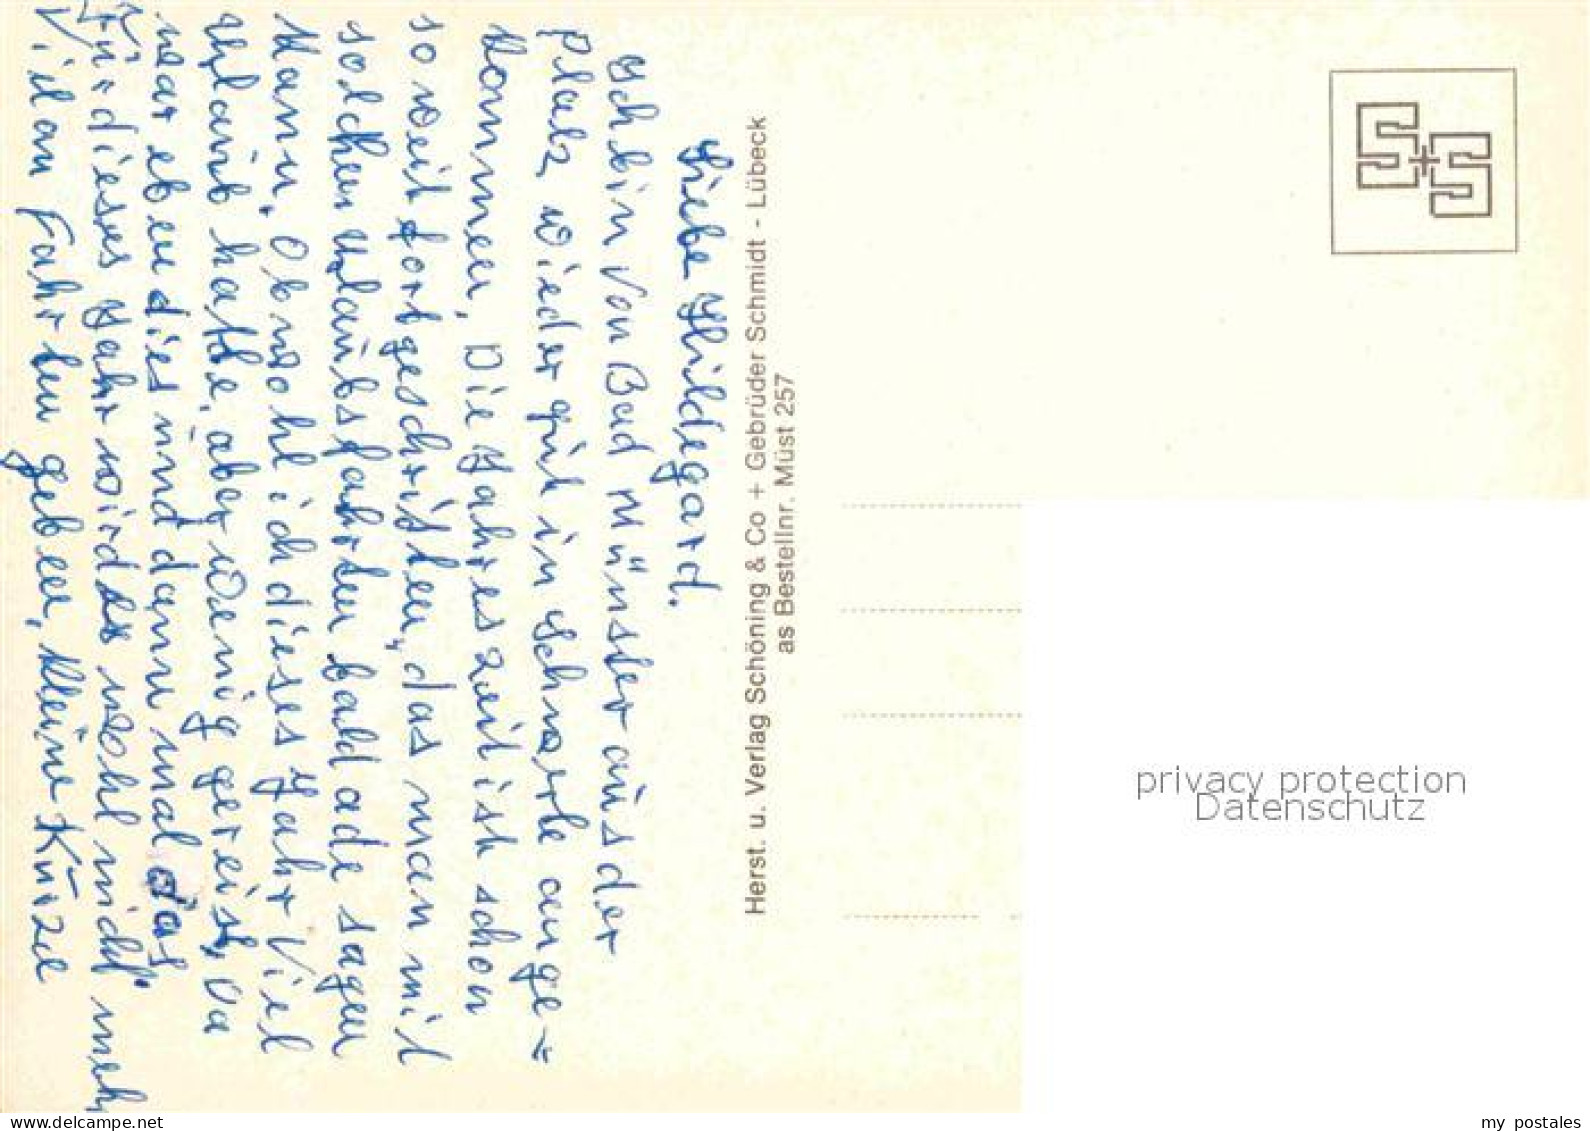 Liebe Hildegard.
Ich bin von Bad Münster aus der
Pfalz wieder gut in Schwarte ange-
kommen. Die Jahreszeit ist schon
so weit fortgeschritten, das man mit
solchen Urlaubsfahrten bald ade sagen
kann. Obwohl ich dieses Jahr viel
Urlaub hatte, aber wenig gereist. Da
war eben dies und dann mal das
Für dieses Jahr wird es wohl nicht mehr
Viel an Fahrten geben, kleine Kurze
Herst. u. Verlag Schöning & Co + Gebrüder Schmidt - Lübeck
as Bestellnr. Müst 257
S+S
privacy protection
Datenschutz
www.delcampe.net
my_postales